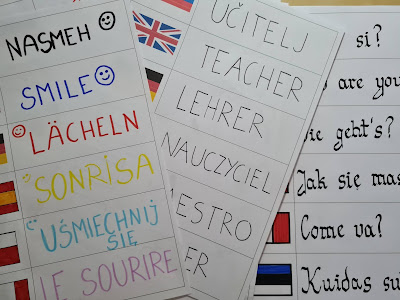 NASMEH
SMILE
LÄCHELN
SONRISA
UŚMIECHNIJ
SIĘ
LE SOURIRE
UČITELJ
TEACHER
LEHRER
NAUCZYCIEL
ESTRO
ER
si?
are you
geht's?
Jak się mas
Come va?
Kuidas su